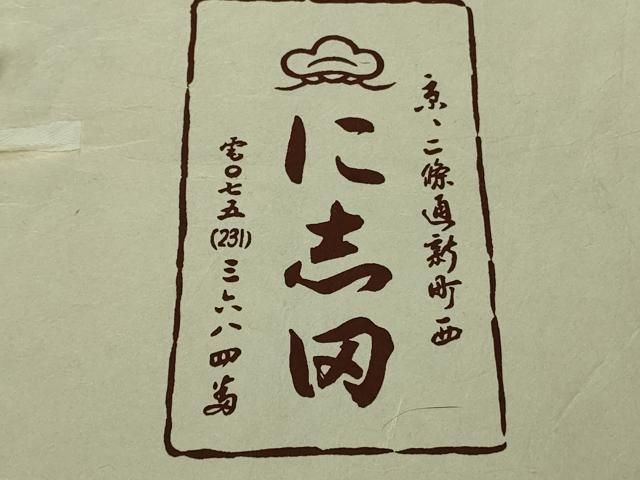 京、二條通新町西
に志冈
電〇七五(231)三六八四番